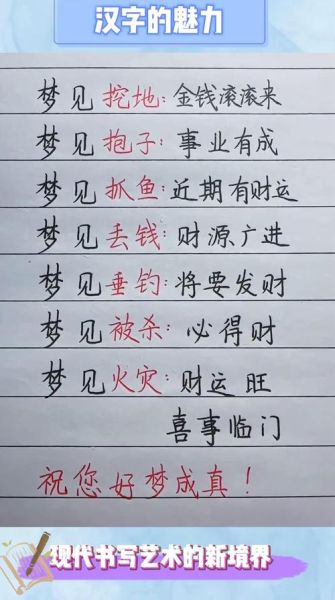 汉字的魅力
梦见挖地:金钱滚滚来
梦见抱子:事业有成
梦见抓鱼:近期有财运
梦见丢钱:财源广进
梦见垂钓:将要发财
梦见被杀:必得财
梦见火灾:财运旺
喜事临门
祝您好梦成真!
现代书写艺术的新境界